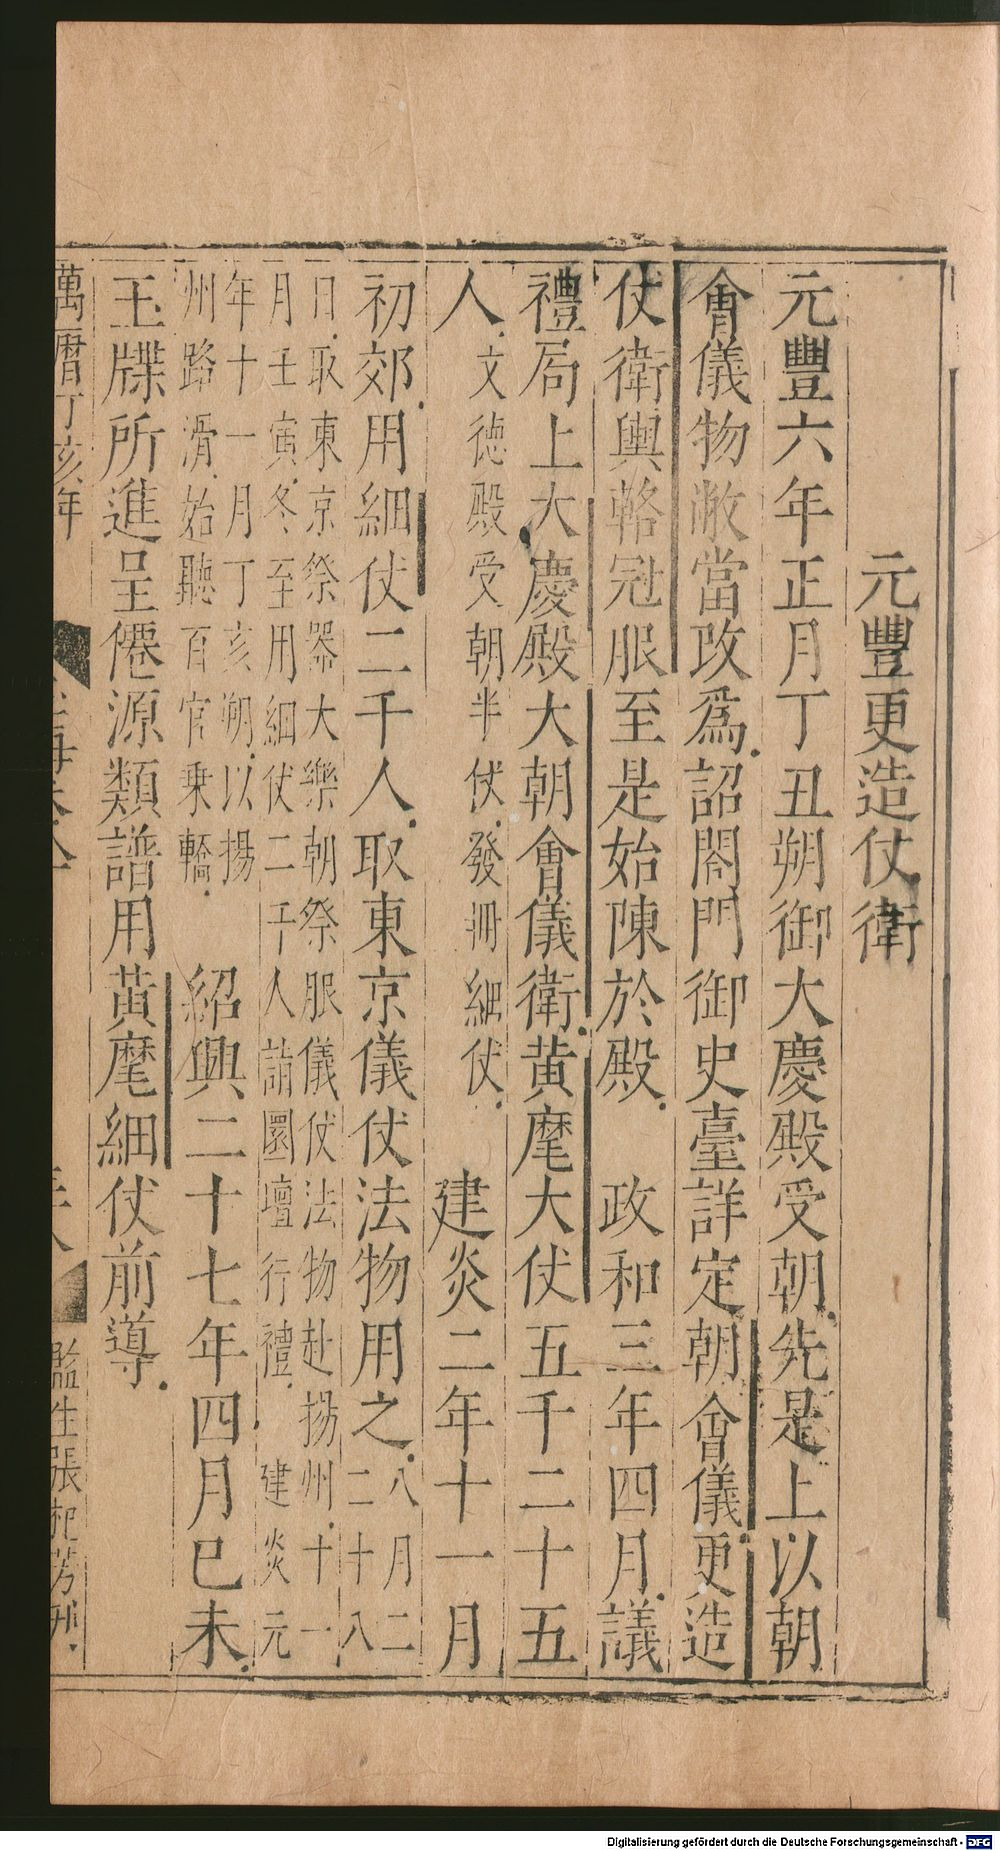 元豐更造仗衛
元豐六年正月丁丑朔御大慶殿受朝先是上以朝
會儀物敝當改爲詔閤門御史臺詳定朝會儀更造
仗衛輿輅冠服至是始陳於殿 政和三年四月議
禮局上大慶殿大朝會儀衛黃麾大仗五千二十五
人文德殿受朝半仗發冊細仗 建炎二年十一月
初郊用細仗二千人取東京儀仗法物用之八月二
二十八
日取東京祭器大樂朝祭服儀仗法物赴揚州十一
月壬寅冬至用細仗二千人詣圜壇行禮 建炎元
年十一月丁亥朔以揚
州路滑始聽百官乘轎 紹興二十七年四月巳未
玉牒所進呈僊源類譜用黃麾細仗前導
萬曆丁亥年
監生張 芳刊
Digitalisierung gefördert durch die Deutsche Forschungsgemeinschaft - DFG